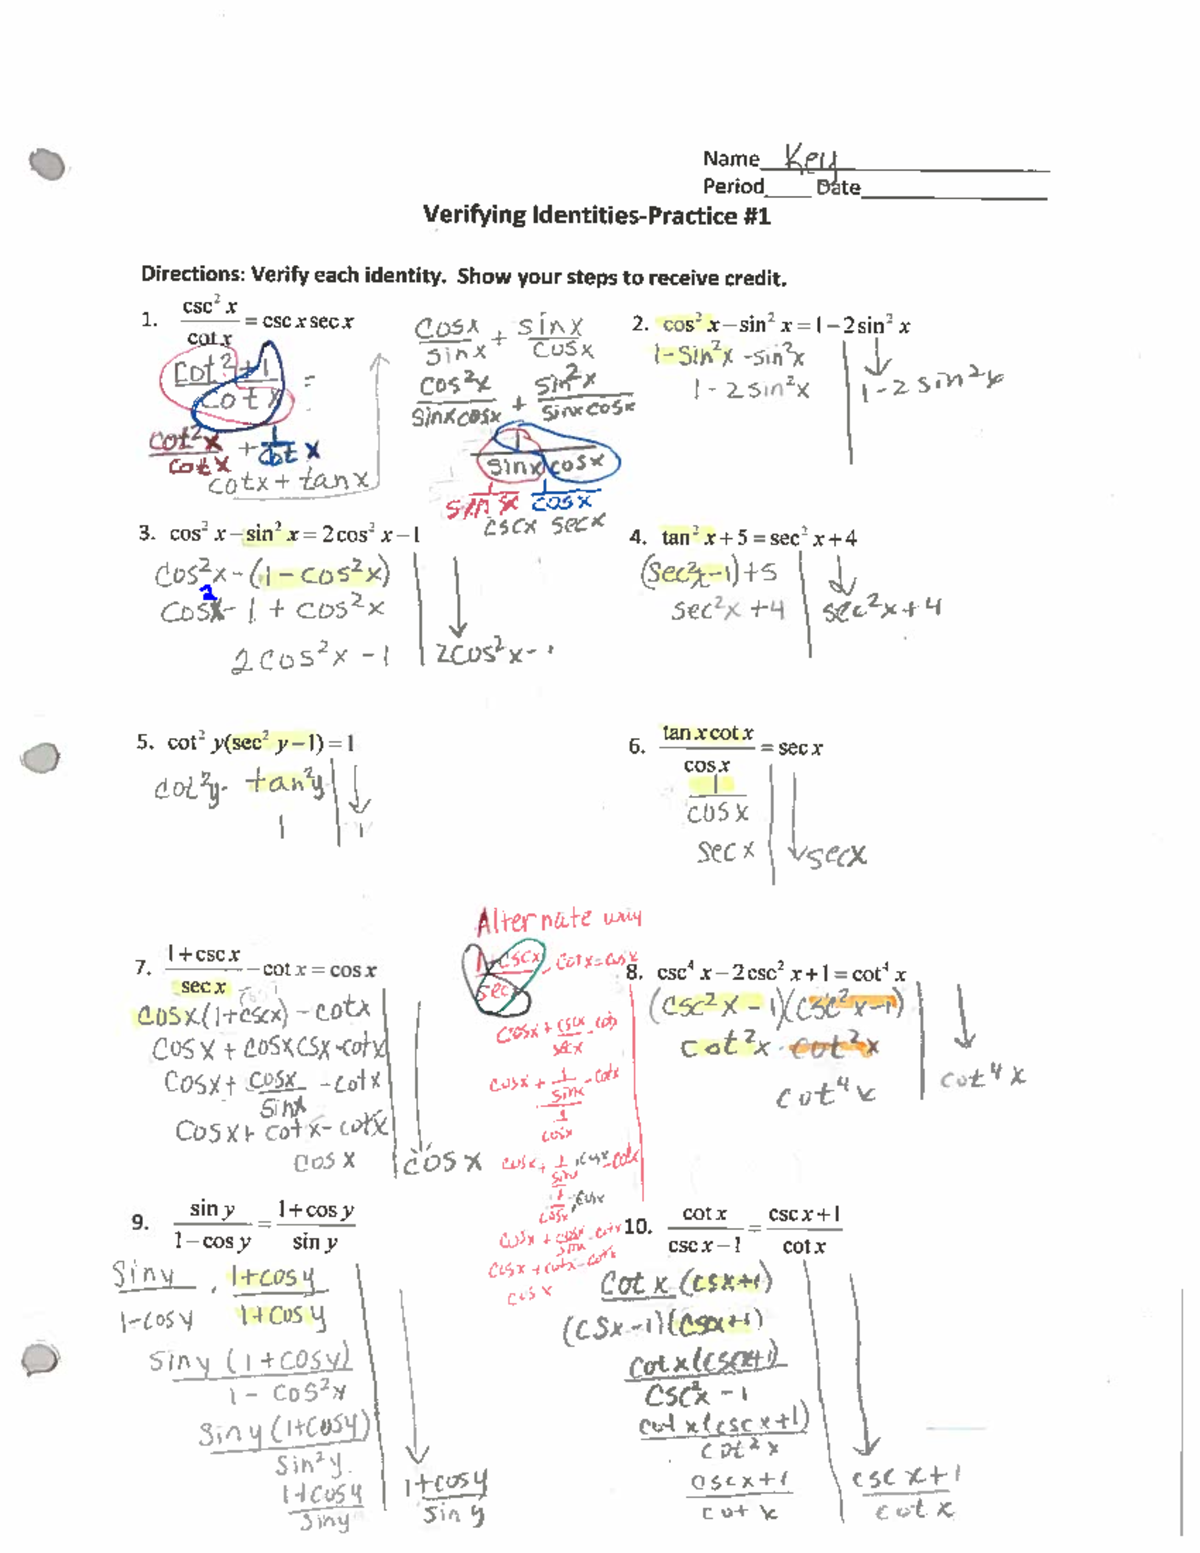 Name Key
Period Date
Verifying Identities-Practice #1
Directions: Verify each identity. Show your steps to receive credit.
1. csc² x / cot x = csc x sec x
cot² + 1 / cot x =
cot²x / cot x + 1 / cot x
cotx + tanx
cosx / sinx + sinx / cosx
cos²x / sinxcosx + sin²x / sinxcosx
1 / sinx cosx
1 / sin x 1 / cosx
cscx secx
2. cos² x – sin² x = 1 – 2 sin² x
1 - sin²x - sin²x
1 - 2 sin²x
1 - 2 sin²x
3. cos² x – sin² x = 2 cos² x – 1
cos²x - (1 - cos²x)
cos²x - 1 + cos²x
2cos²x - 1
2cos²x -
4. tan² x + 5 = sec² x + 4
(sec²x - 1) + 5
sec²x + 4
sec²x + 4
5. cot² y(sec² y – 1) = 1
cot²y · tan²y
1
1
6. tan x cot x / cos x = sec x
1 / cosx
sec x
secx
7. 1 + csc x / sec x – cot x = cos x
cosx(1+cscx) - cotx
cosx + cosx csx - cotx
cosx + cosx / sinx - cotx
cosx + cotx - cotx
cos x
cos x
Alternate way
1+cscx / secx - cotx = cosx
cosx + cscx / secx - cot
cosx + 1 / sinx / 1 / cosx - cotx
cosx + 1 / sinx · cosx / 1 / cosx · cosx - cotx
cosx + cosx / sinx - cotx
cosx + cotx - cotx
cos x
8. csc⁴ x – 2 csc² x + 1 = cot⁴ x
(csc²x - 1)(csc²x - 1)
cot²x · cot²x
cot⁴x
cot⁴x
9. sin y / 1 – cos y = 1 + cos y / sin y
siny / 1 - cosy · 1 + cosy / 1 + cosy
siny (1 + cosy) / 1 - cos²x
siny (1+cosy) / sin²y
1+cosy / siny
1+cosy / sin y
10. cot x / csc x – 1 = csc x + 1 / cot x
cot x (csx+1) / (csx-1)(cscx+1)
cotx(cscx+1) / csc²x - 1
cotx(cscx+1) / cot²x
cscx+1 / cotx
csc x+1 / cot x